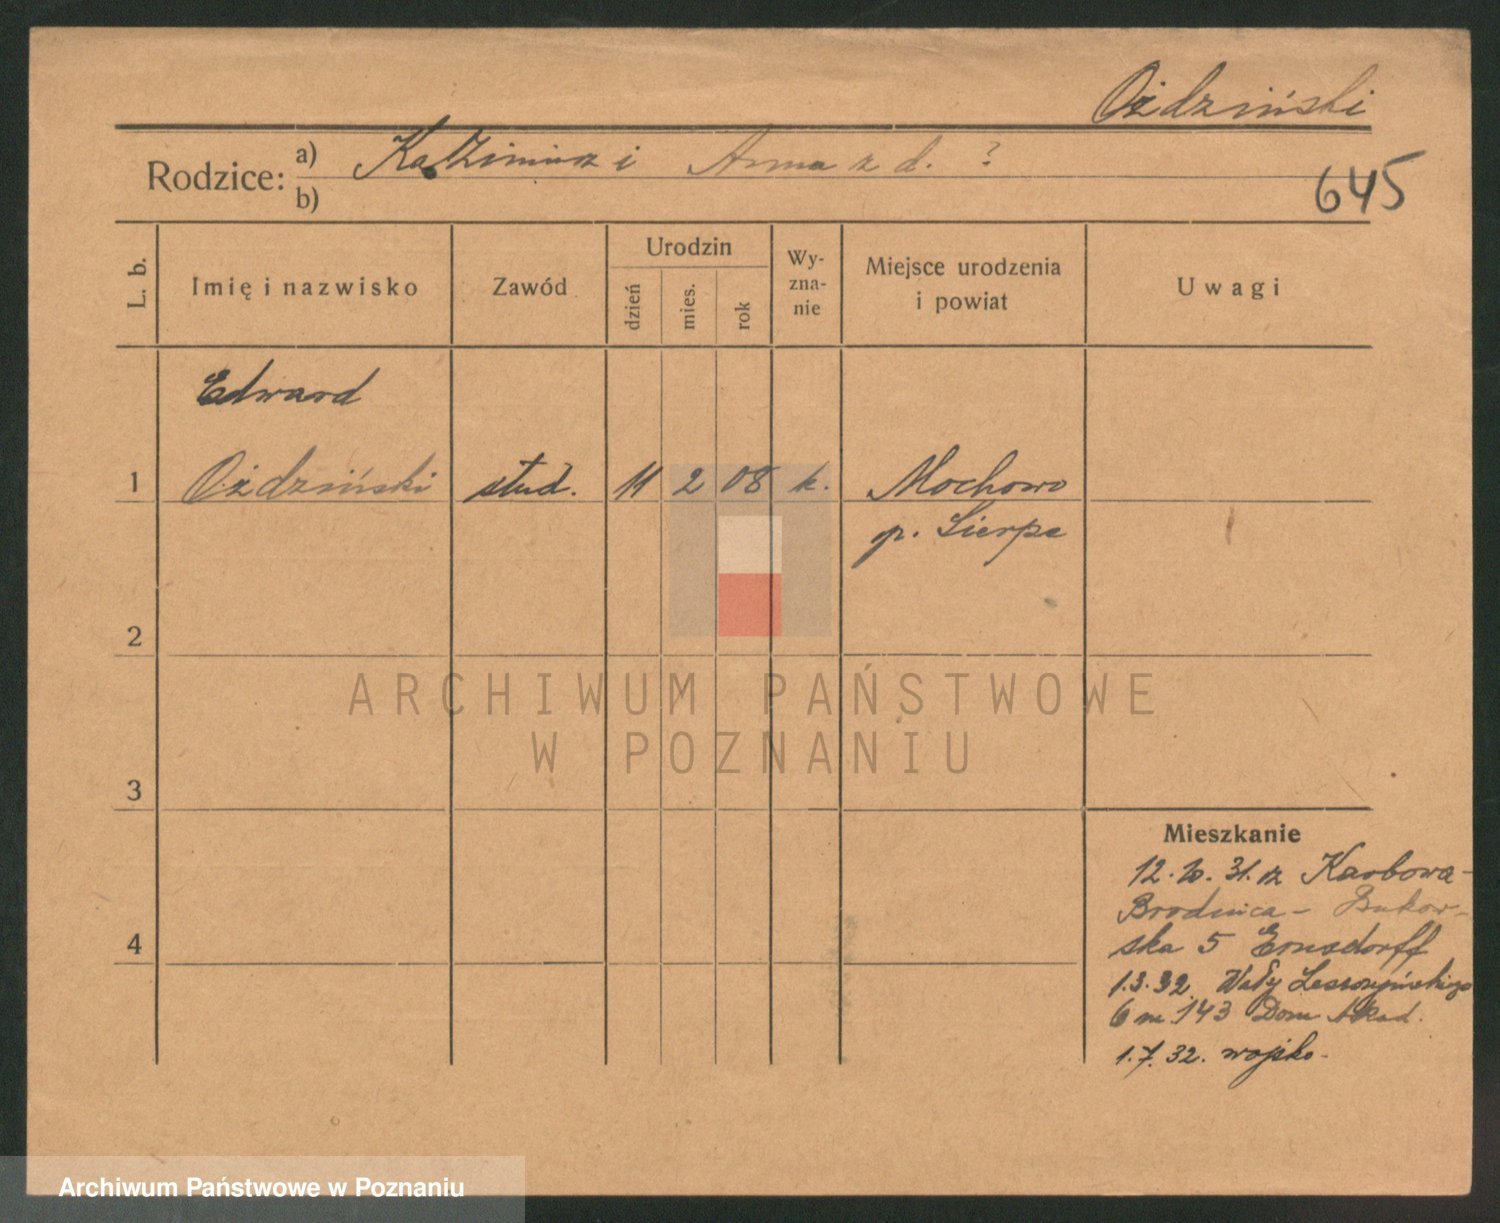 Oździński
Rodzice: a) Kazimierz i Anna z d. ?
b)
645
L. b.
Imię i nazwisko
Zawód
Urodzin
dzień
mies.
rok
Wy-
zna-
nie
Miejsce urodzenia
i powiat
Uwagi
Edward
1 Oździński stud. 11 2 08 k. Mochowo
p. Sierpc
2
3
4
Mieszkanie
12.10.31. z Karbowa-
Brodnica - Bukow-
ska 5 Ernsdorff
1.3.32. Wały Leszczyńskiego
6 m 143 Dom Akad.
1.7.32. wojsko-
ARCHIWUM PAŃSTWOWE
W POZNANIU
Archiwum Państwowe w Poznaniu